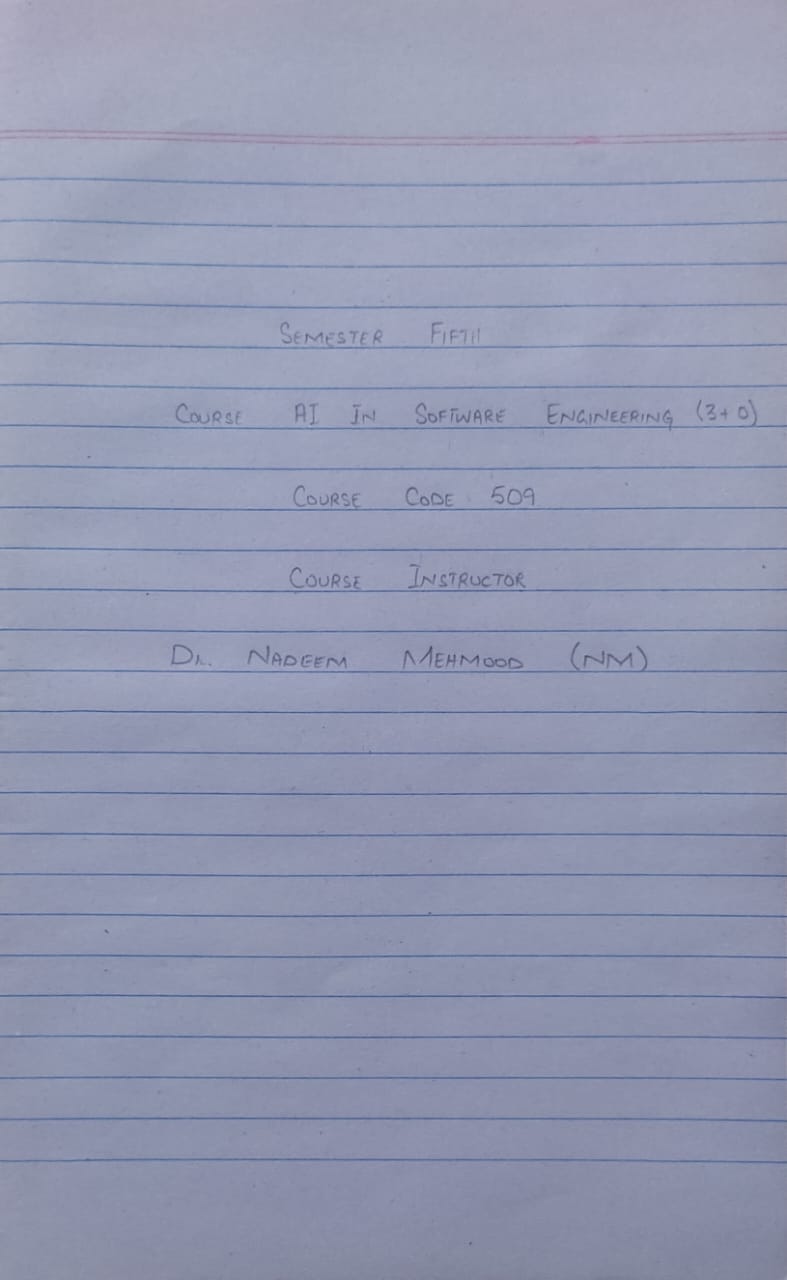 SEMESTER FIFTH
COURSE AI IN SOFTWARE ENGINEERING (3+0)
COURSE CODE 509
COURSE INSTRUCTOR
DR. NADEEM MEHMOOD (NM)